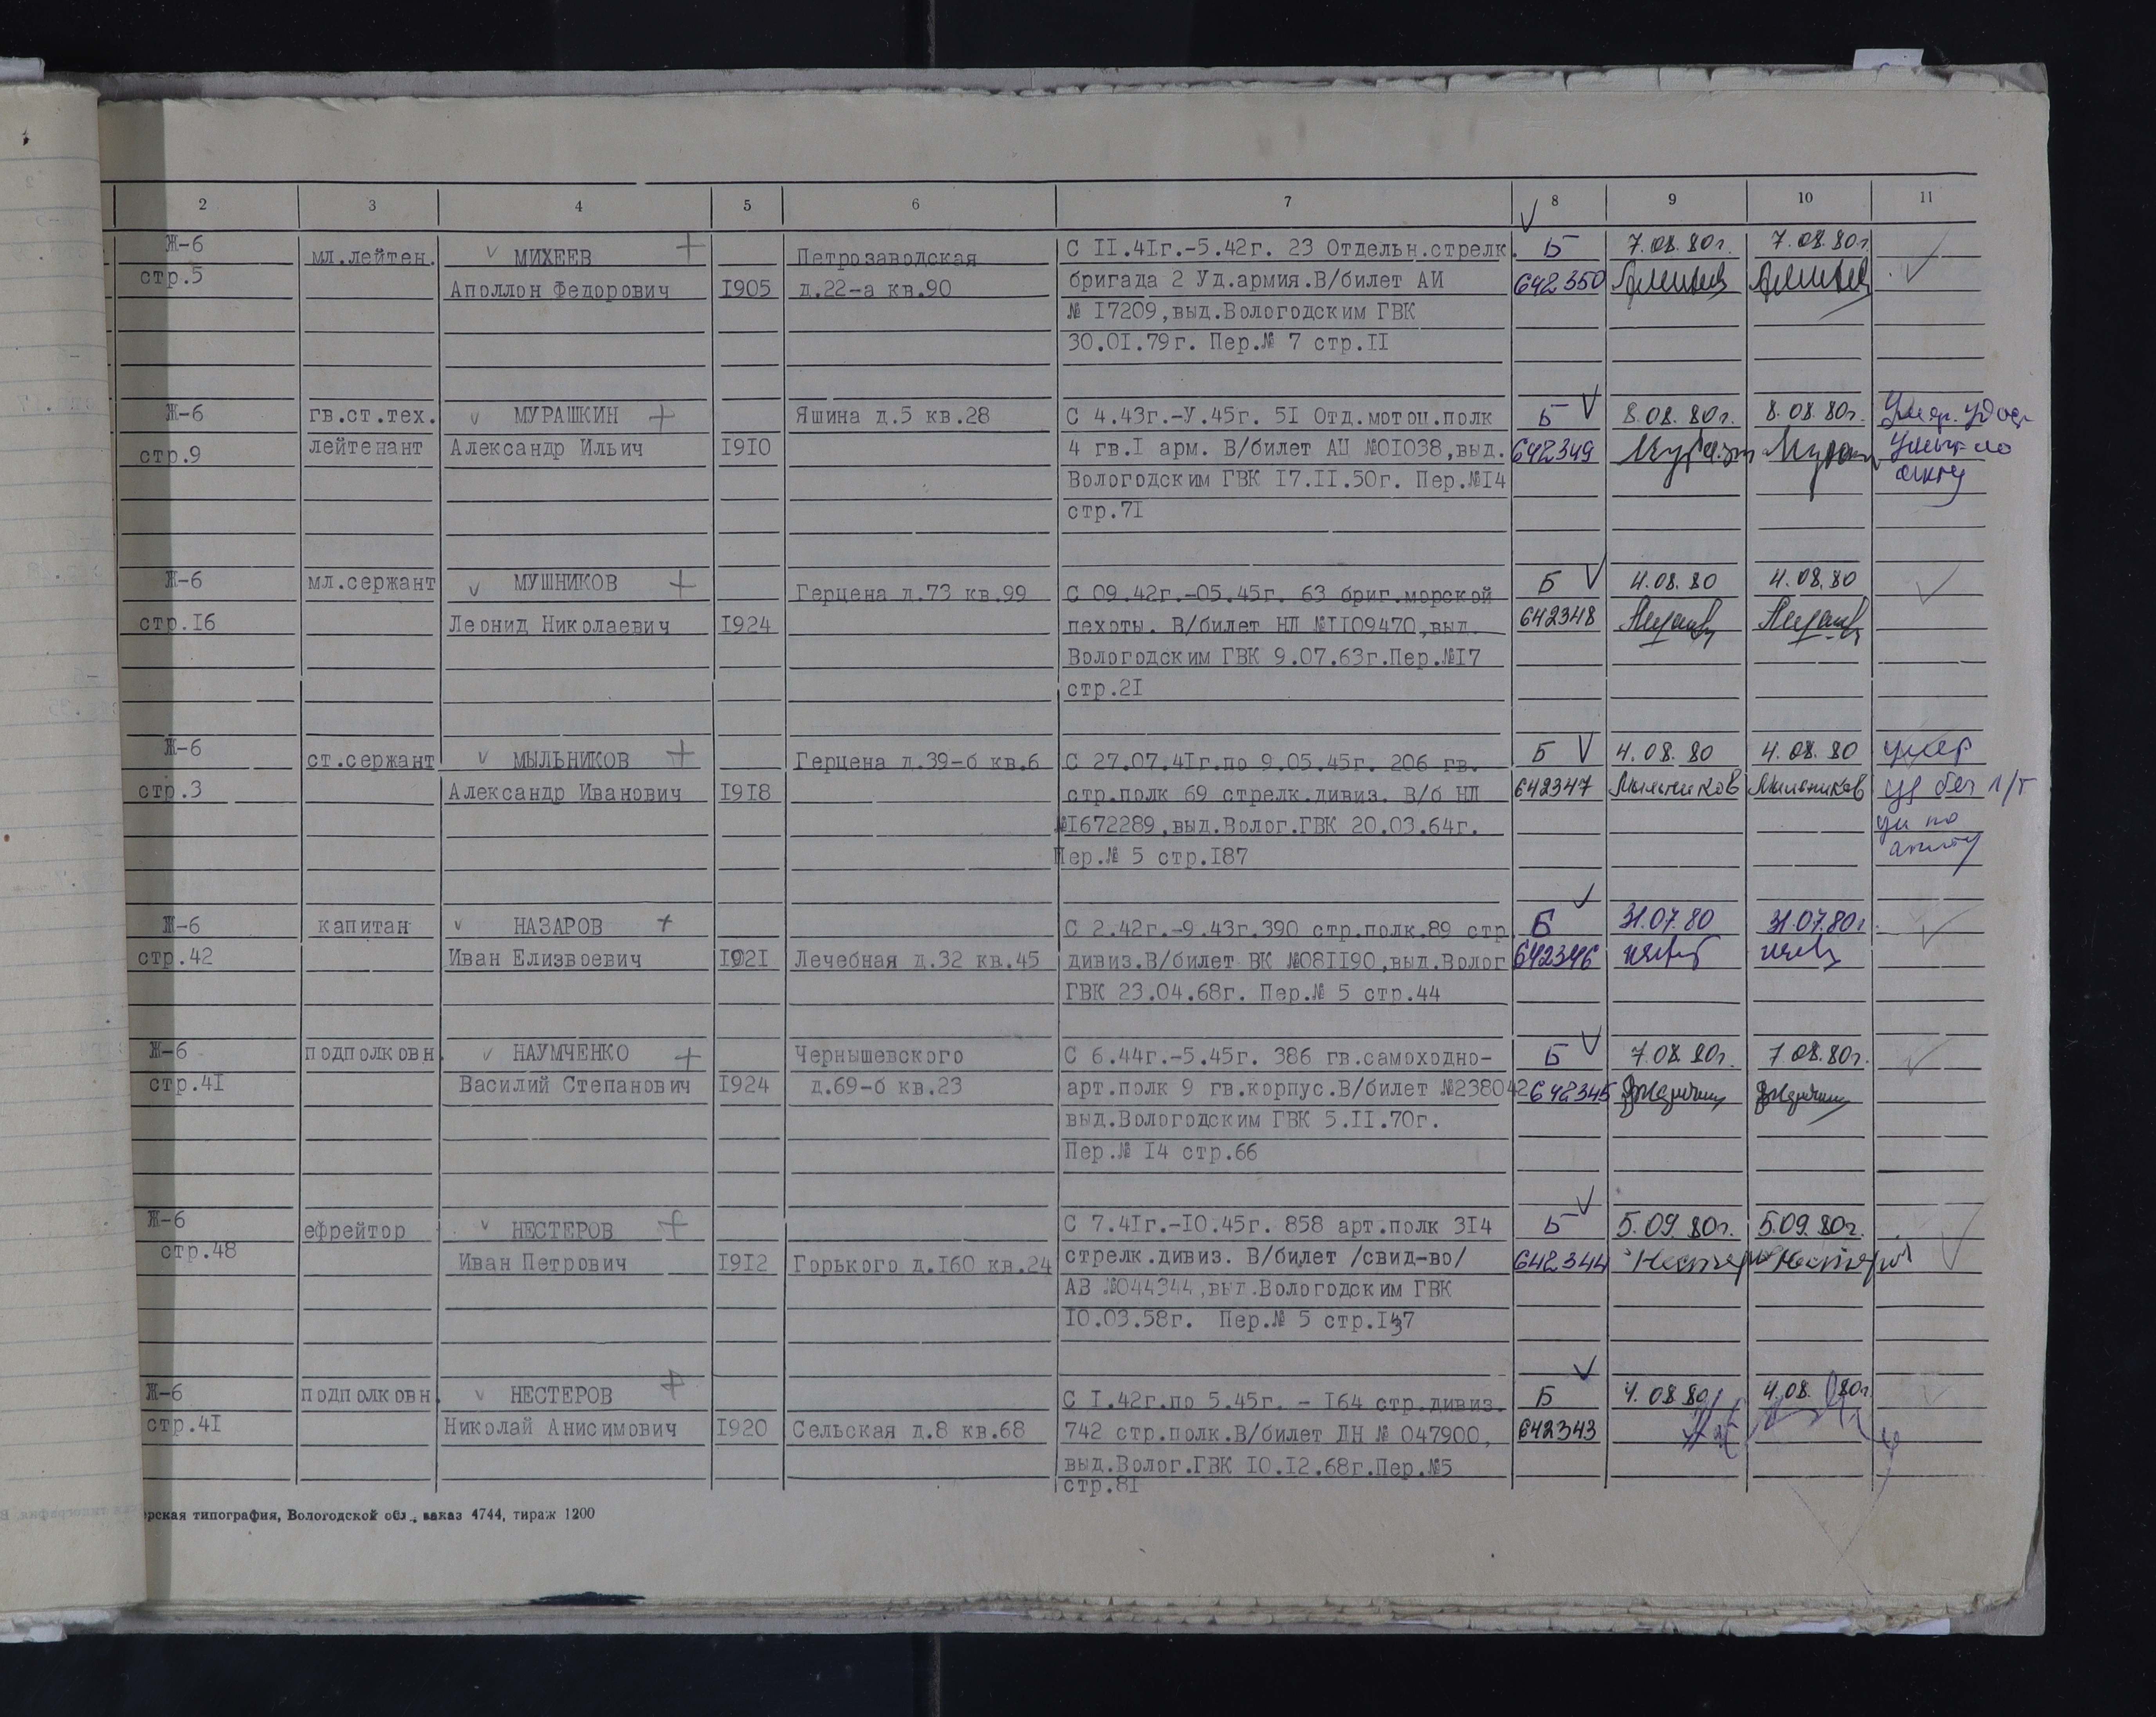 2 3 4 5 6 7 8 9 10 11
Ж-6 мл.лейтен. МИХЕЕВ Петрозаводская С II.4Iг.-5.42г. 23 Отдельн.стрелк. Б 7.08.80г. 7.08.80г.
стр.5 Аполлон Федорович I905 д.22-а кв.90 бригада 2 Уд.армия.В/билет АИ 642350
№ I7209,выд.Вологодским ГВК
30.0I.79г. Пер.№ 7 стр.II
Ж-6 гв.ст.тех. МУРАШКИН Яшина д.5 кв.28 С 4.43г.-У.45г. 5I Отд.мотоц.полк Б 8.08.80г. 8.08.80г.
стр.9 лейтенант Александр Ильич I9I0 4 гв.I арм. В/билет АЦ №0I038,выд. 642349
Вологодским ГВК I7.II.50г. Пер.№I4 акту
стр.7I
Ж-6 мл.сержант МУШНИКОВ Герцена д.73 кв.99 С 09.42г.-05.45г. 63 бриг.морской Б 4.08.80 4.08.80
стр.I6 Леонид Николаевич I924 пехоты. В/билет НЛ №II09470,выд. 642348
Вологодским ГВК 9.07.63г.Пер.№I7
стр.2I
Ж-6 ст.сержант МЫЛЬНИКОВ Герцена д.39-б кв.6 С 27.07.4Iг.по 9.05.45г. 206 гв. Б 4.08.80 4.08.80 умер
стр.3 Александр Иванович I9I8 стр.полк 69 стрелк.дивиз. В/б НЛ 642347 Мыльников Мыльников уд без
№I672289,выд.Волог.ГВК 20.03.64г. по
Пер.№ 5 стр.I87 акту
Ж-6 капитан НАЗАРОВ С 2.42г.-9.43г.390 стр.полк.89 стр. Б 31.07.80 31.07.80г.
стр.42 Иван Елизвоевич I92I Лечебная д.32 кв.45 дивиз.В/билет ВК №08II90,выд.Волог 642346
ГВК 23.04.68г. Пер.№ 5 стр.44
Ж-6 подполковн. НАУМЧЕНКО Чернышевского С 6.44г.-5.45г. 386 гв.самоходно- Б 7.08.80г. 7.08.80г.
стр.4I Василий Степанович I924 д.69-б кв.23 арт.полк 9 гв.корпус.В/билет №238042 642345
выд.Вологодским ГВК 5.II.70г.
Пер.№ I4 стр.66
Ж-6 ефрейтор НЕСТЕРОВ С 7.4Iг.-I0.45г. 858 арт.полк 3I4 Б 5.09.80г. 5.09.80г.
стр.48 Иван Петрович I9I2 Горького д.I60 кв.24 стрелк.дивиз. В/билет /свид-во/ 642344
АВ №044344,выд.Вологодским ГВК
I0.03.58г. Пер.№ 5 стр.I37
Ж-6 подполковн. НЕСТЕРОВ С I.42г.по 5.45г. - I64 стр.дивиз. Б 4.08.80 4.08.80г.
стр.4I Николай Анисимович I920 Сельская д.8 кв.68 742 стр.полк.В/билет ДН № 047900, 642343
выд.Волог.ГВК I0.I2.68г.Пер.№5
стр.8I
рская типография, Вологодской обл., заказ 4744, тираж 1200